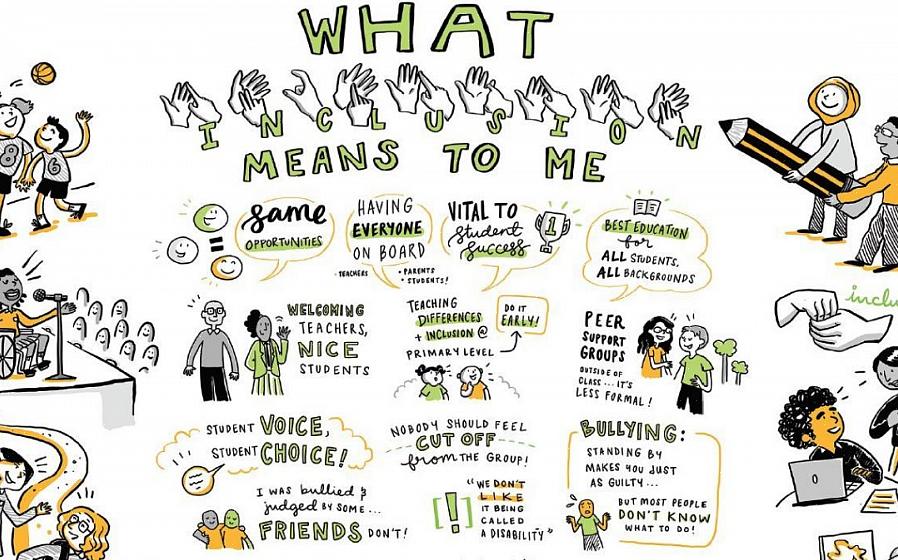 WHAT
INCLUSION
MEANS TO ME
8
6
Same
OPPORTUNITIES
HAVING
EVERYONE
ON BOARD
• TEACHERS
• PARENTS
• STUDENTS!
VITAL TO
Student
Success
1
BEST EDUCATION
for
ALL STUDENTS,
ALL BACKGROUNDS
WELCOMING
TEACHERS,
NICE
STUDENTS
TEACHING
DIFFERENCES
+ INCLUSION @
PRIMARY LEVEL
DO IT
EARLY!
PEER
SUPPORT
GROUPS
OUTSIDE OF
CLASS... IT'S
LESS FORMAL!
inclu
STUDENT VOICE,
STUDENT CHOICE!
NOBODY SHOULD FEEL
CUT OFF
from THE GROUP!
BULLYING:
STANDING BY
MAKES YOU JUST
AS GUILTY...
BUT MOST PEOPLE
DON'T KNOW
WHAT TO DO!
I WAS bullied &
judged BY SOME...
FRIENDS DON'T!
[!]
"WE DON'T
LIKE
IT BEING
CALLED
A DISABILITY"